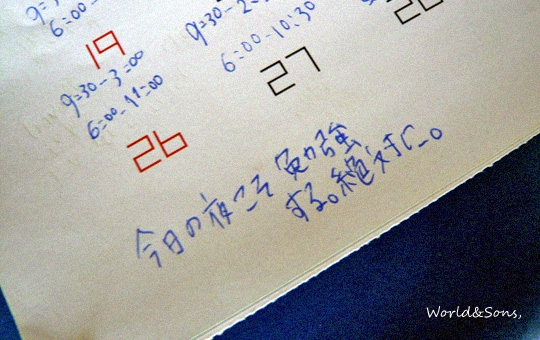 6:00-
19
9:30-2
20
9=30-3=00
6:00-10:30
6=00-11=00
27
26
今日の夜こそ勉強
する。絶対に。
World&Sons,